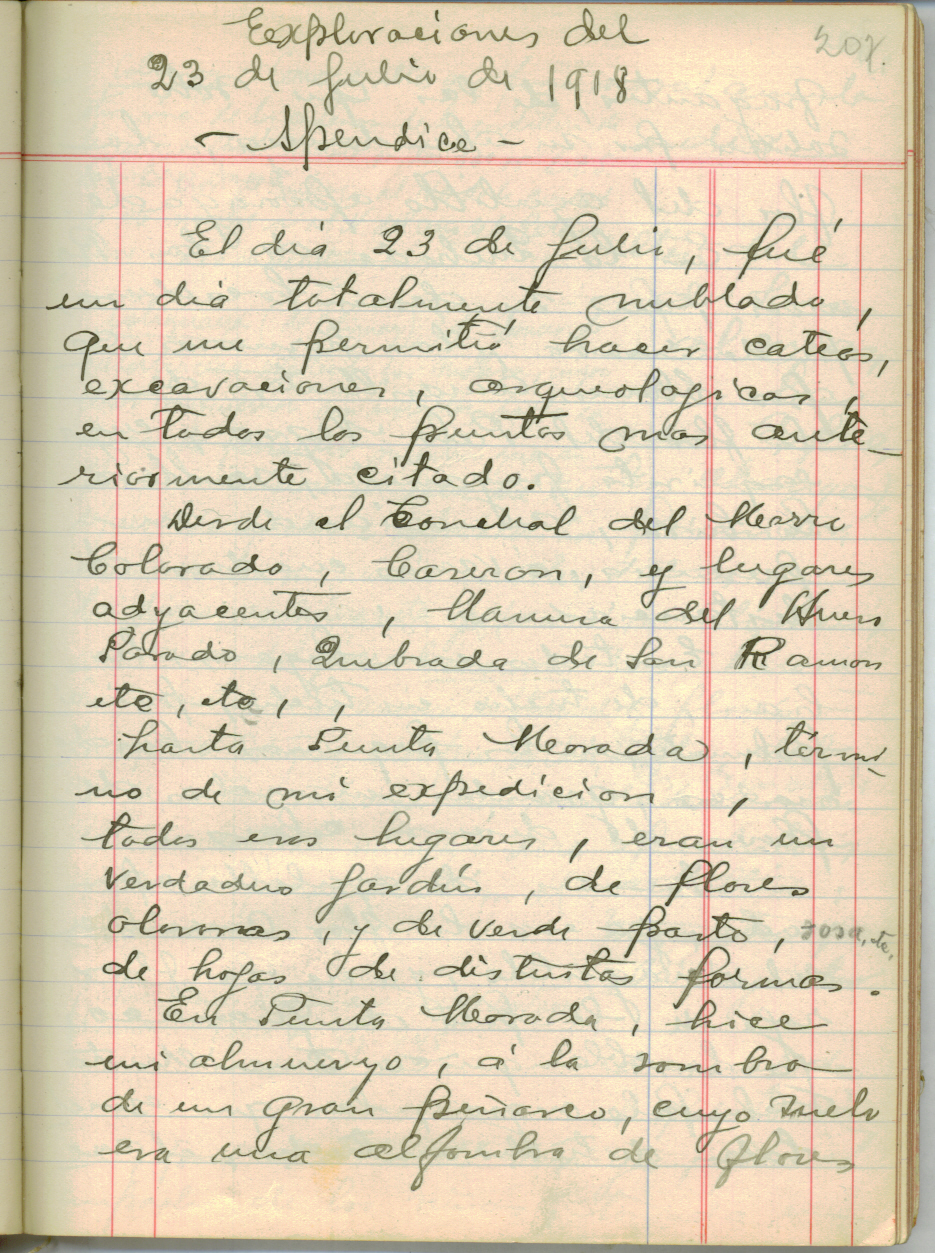 Exploraciones del
207.
23 de Julio de 1918
- Apendice -
El dia 23 de Julio, fué
un dia totalmente nublado,
que me permitió hacer cateos,
excavaciones, arqueologicas,
en todos los puntos mas ante-
riormente citado.
Desde el Conchal del Morro
Colorado, Caseron, y lugares
adyacentes, llanura del Hueso
Parado, Quebrada de San Ramon
etc, etc, ,
hasta Punta Morada, térmi-
no de mi expedicion,
todos esos lugares, eran un
verdadero Jardín, de flores
olorosas, y de verde pasto,
de hojas de distintas formas.
En Punta Morada, hice
mi almuerzo, á la sombra
de un gran peñasco, cuyo suelo
era una alfombra de flores